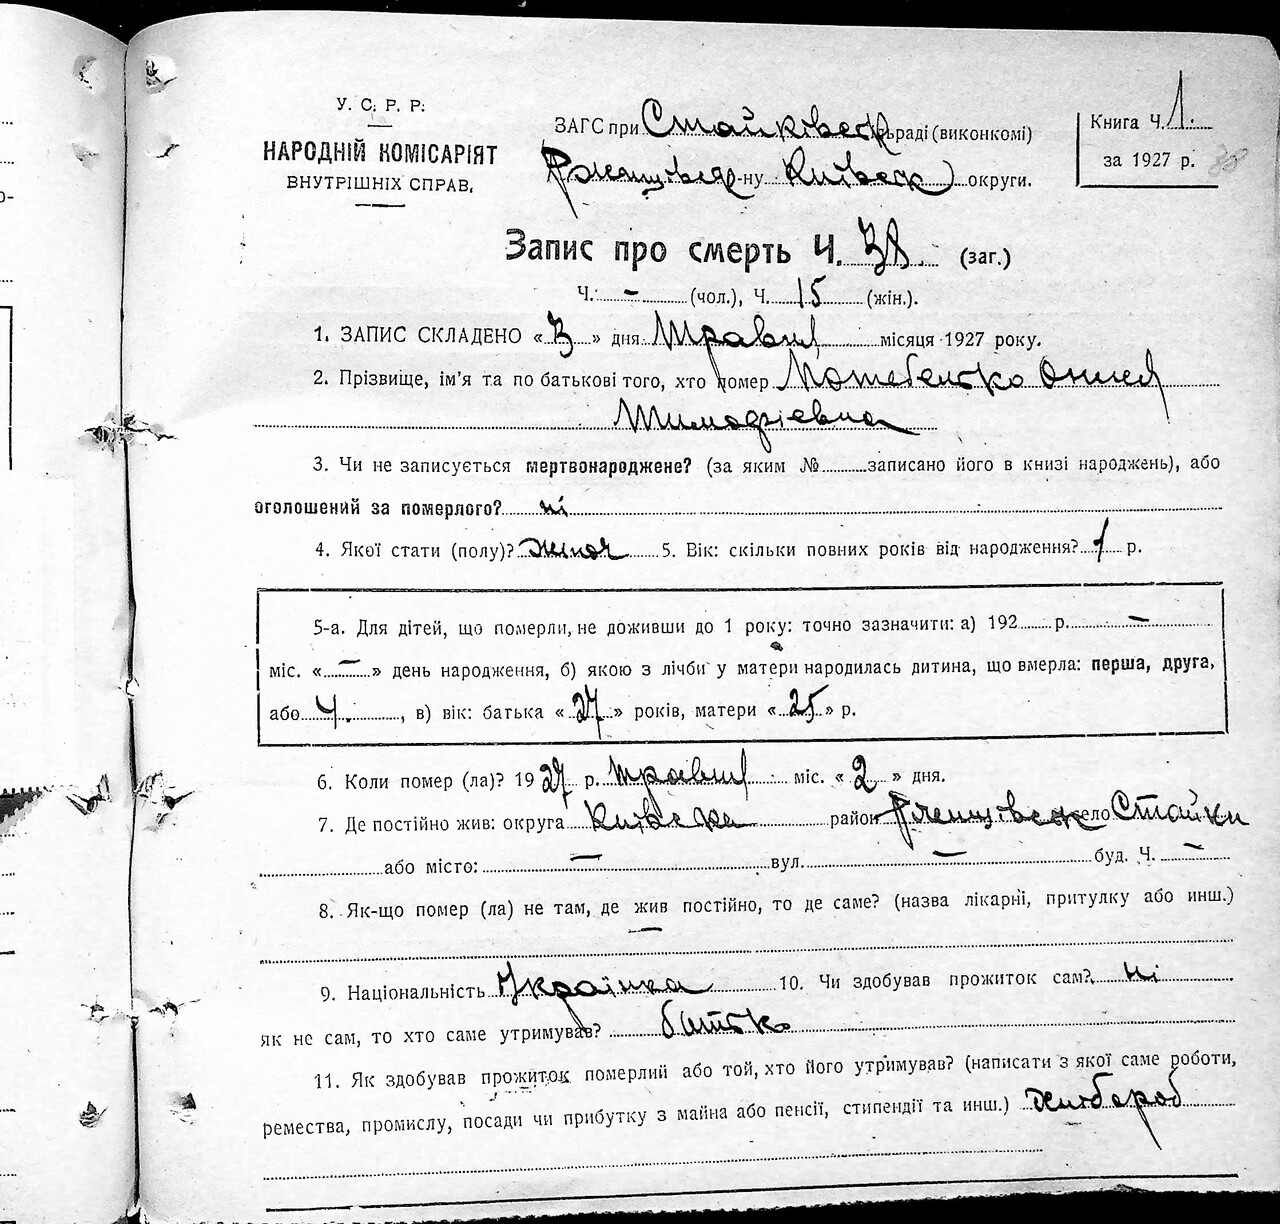 У. С. Р. Р.
НАРОДНІЙ КОМІСАРІЯТ
ВНУТРІШНІХ СПРАВ.
ЗАГС при Стайківськ раді (виконкомі)
Ржищівськ р-ну Київськ округи.
Книга Ч. 1.
за 1927 р.
Запис про смерть Ч. 38 (заг.)
Ч. - (чол.), Ч. 15 (жін.).
1. ЗАПИС СКЛАДЕНО « 3 » дня Травня місяця 1927 року.
2. Прізвище, ім'я та по батькові того, хто помер Мотебелько
Тимофієвна
3. Чи не записується мертвонароджене? (за яким № записано його в книзі народжень), або
оголошений за померлого? ні
4. Якої стати (полу)? жіноч 5. Вік: скільки повних років від народження? 1 р.
5-а. Для дітей, що померли, не доживши до 1 року: точно зазначити: а) 192 р. —
міс. « — » день народження, б) якою з лічби у матери народилась дитина, що вмерла: перша, друга,
або 4. , в) вік: батька « 27 » років, матери « 25 » р.
6. Коли помер (ла)? 19 27 р. травня міс. « 2 » дня.
7. Де постійно жив: округа Київська район Ржищівськ село Стайки
або місто: — вул. — буд. Ч. —
8. Як-що помер (ла) не там, де жив постійно, то де саме? (назва лікарні, притулку або инш.)
—
9. Національність Українка 10. Чи здобував прожиток сам? ні
як не сам, то хто саме утримував? батько
11. Як здобував прожиток померлий або той, хто його утримував? (написати з якої саме роботи,
ремества, промислу, посади чи прибутку з майна або пенсії, стипендії та инш.) хлібороб